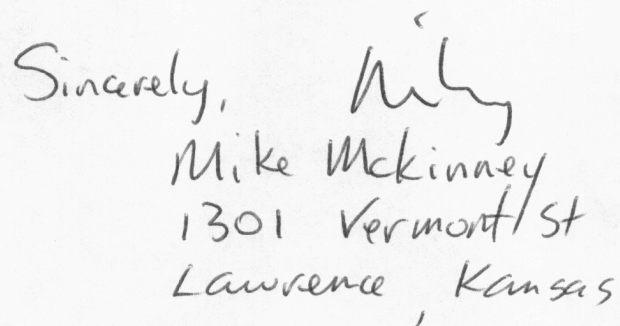 Sincerely,
Mike McKinney
1301 Vermont St
Lawrence, Kansas